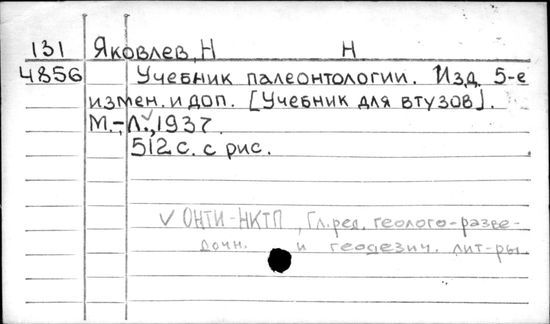 131 Яковлев, Н Н
4856 Учебник палеонтологии. Изд. 5-е
измен. и доп. [Учебник для втузов].
М.-Л., 1937.
512 с. с рис.
ОНТИ-НКТП, Гл. ред. геолого-разве-
дочн. и геодезич. лит-ры